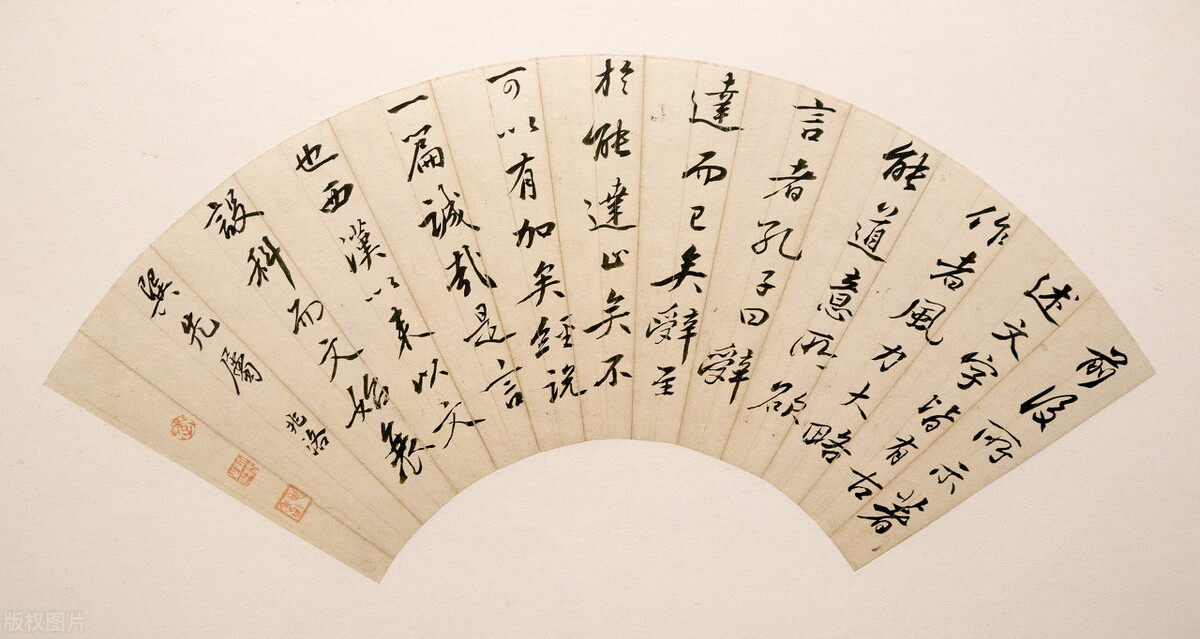 前後所示著
述文字皆有古
作者風力大略
能道意所欲
言者孔子曰辭
達而已矣辭至
於能達止矣不
可以有加矣經說
一篇誠哉是言
也西漢以來以文
設科而文始衰
巽先屬 兆洛
版权图片